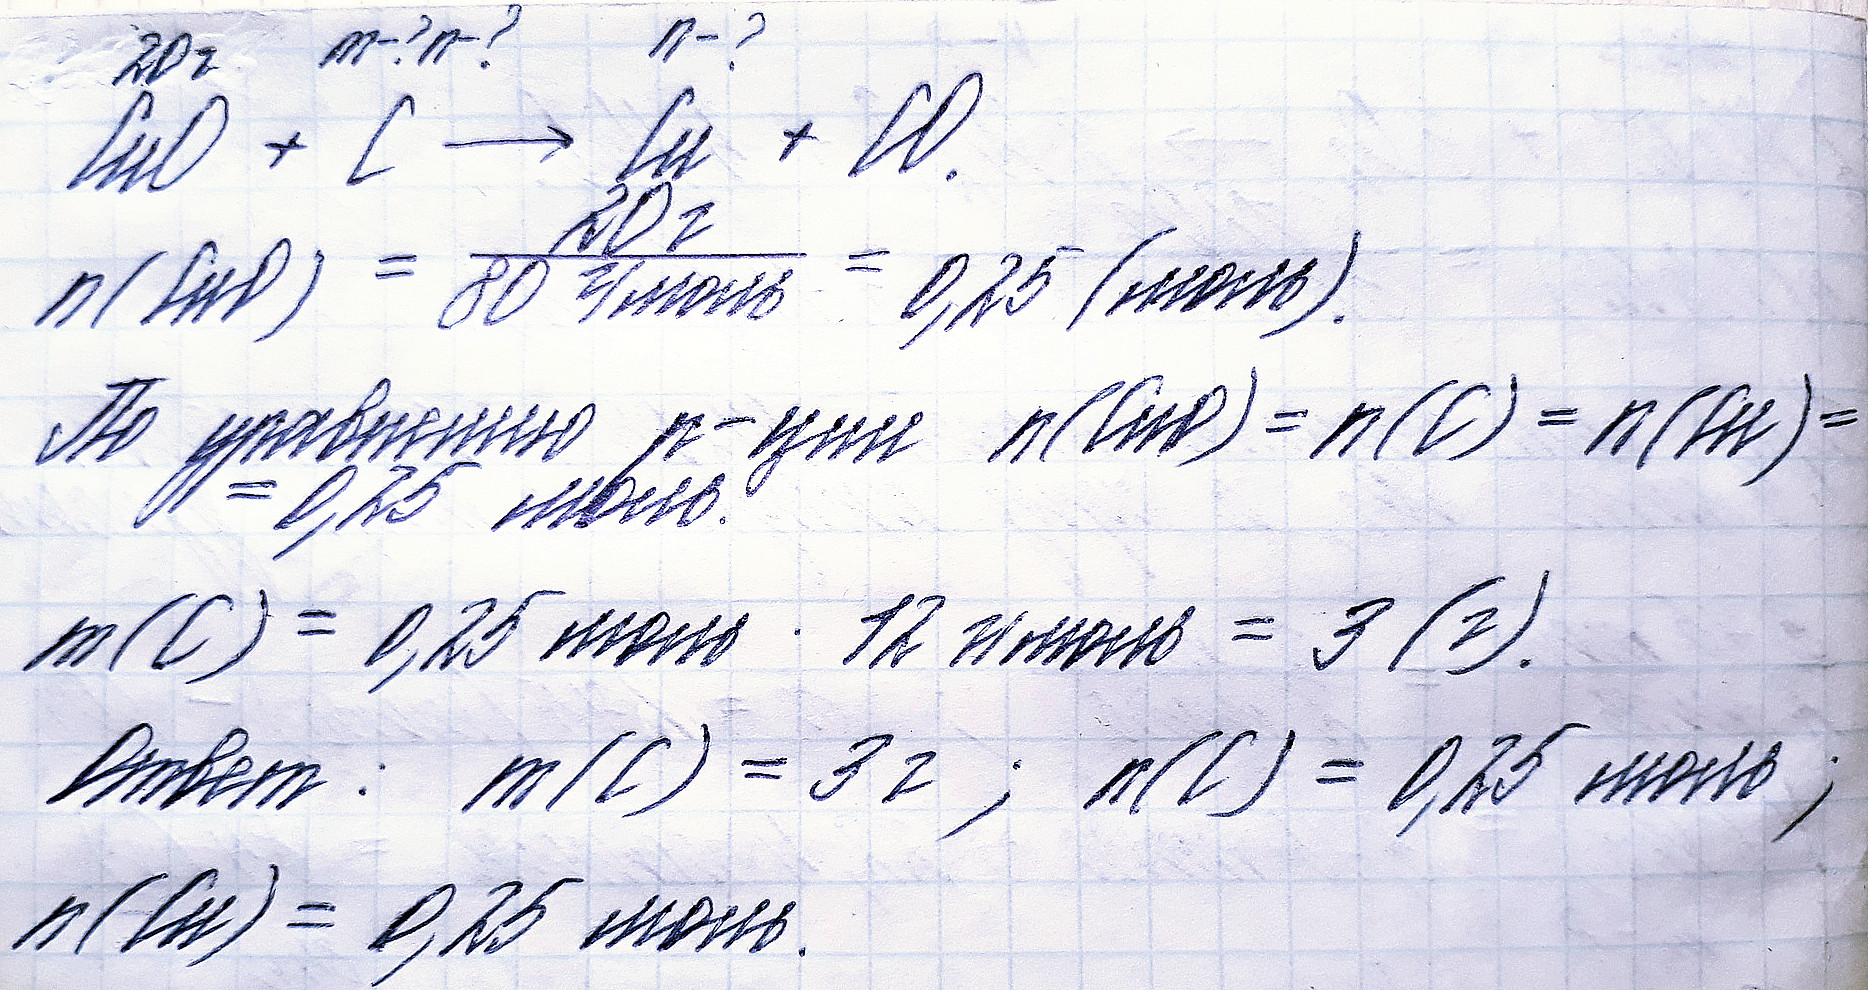 20г m-? n-? n-?
CuO + C → Cu + CO.
n(CuO) = 20 г / 80 г/моль = 0,25 (моль).
По уравнению р-ции n(CuO) = n(C) = n(Cu) =
= 0,25 моль.
m(C) = 0,25 моль · 12 г/моль = 3 (г).
Ответ: m(C) = 3 г ; n(C) = 0,25 моль ;
n(Cu) = 0,25 моль.